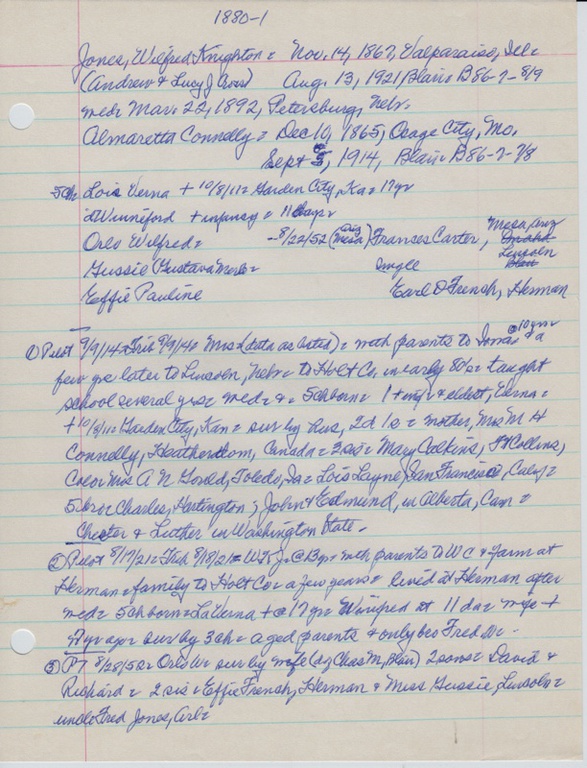 1880-1
Jones, Wilfred Knighton = Nov. 14, 1867, Valparaiso, Ill=
(Andrew & Lucy J Ross) Aug. 13, 1921, Blair B86-7-8/9
med= Mar. 22, 1892, Petersburg, Nebr.
Almaretta Connelly = Dec 10, 1865, Osage City, Mo.
Sept 5, 1914, Blair= B86-7-7/8
5ch Lois Verna + 10/8/11= Garden City, Ka= 17yr
Winneford + infancy = 11 days
Orlo Wilfred= -8/22/52 (Mesa Ariz) Frances Carter, Mesa, Ariz
Omaha
Gussie (Gustava Merle= single Lincoln
Blair
Effie Pauline Earl D French, Herman
① Pilot 9/9/14= Trib 9/9/14= Mrs J (data as listed) = with parents to Iowa @ 10 yrs & a
few yrs later to Lincoln, Nebr= to Holt Co. in early 80's= taught
school several yrs= med= & = 5ch born= 1 + inf & eldest, Verna=
+ 10/8/11= Garden City, Kan= sur by hus, 2d 1s= mother, Mrs M H
Connelly, Canada= 3sis= Mary Calkins, Ft Collins,
Colo= Mrs A N Gould, Toledo, Ia= Lois Layne, San Francisco, Calif=
5 bro= Charles, Hartington; John & Edmund, in Alberta, Can=
Chester & Luther in Washington State.
② Pilot 8/17/21= Trib 8/18/21= WKJ= @ 13yr= with parents to W C & farm at
Herman= family to Holt Co= a few years= lived at Herman after
med= 5ch born= LaVerna + @ 17yr= Winifred at 11 da= wife +
7 yr ago= sur by 3ch= aged parents & only bro Fred W=
③ PT 8/28/52= Orlo W= sur by wife (d/ Chas M, Blair) 2 sons= David &
Richard= 2 sis= Effie French, Herman & Miss Gussie, Lincoln=
uncle Fred Jones, Arl=